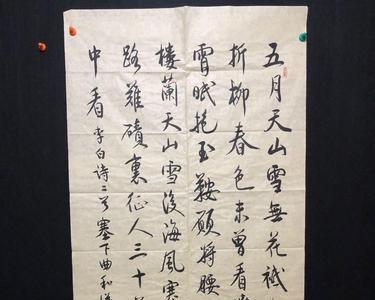 五月天山雪無花祗
折柳春色未曾看
宵眠抱玉鞍願將腰
樓蘭天山雪後海風寒
路難磧裏征人三十
中看李白詩二首塞下曲和